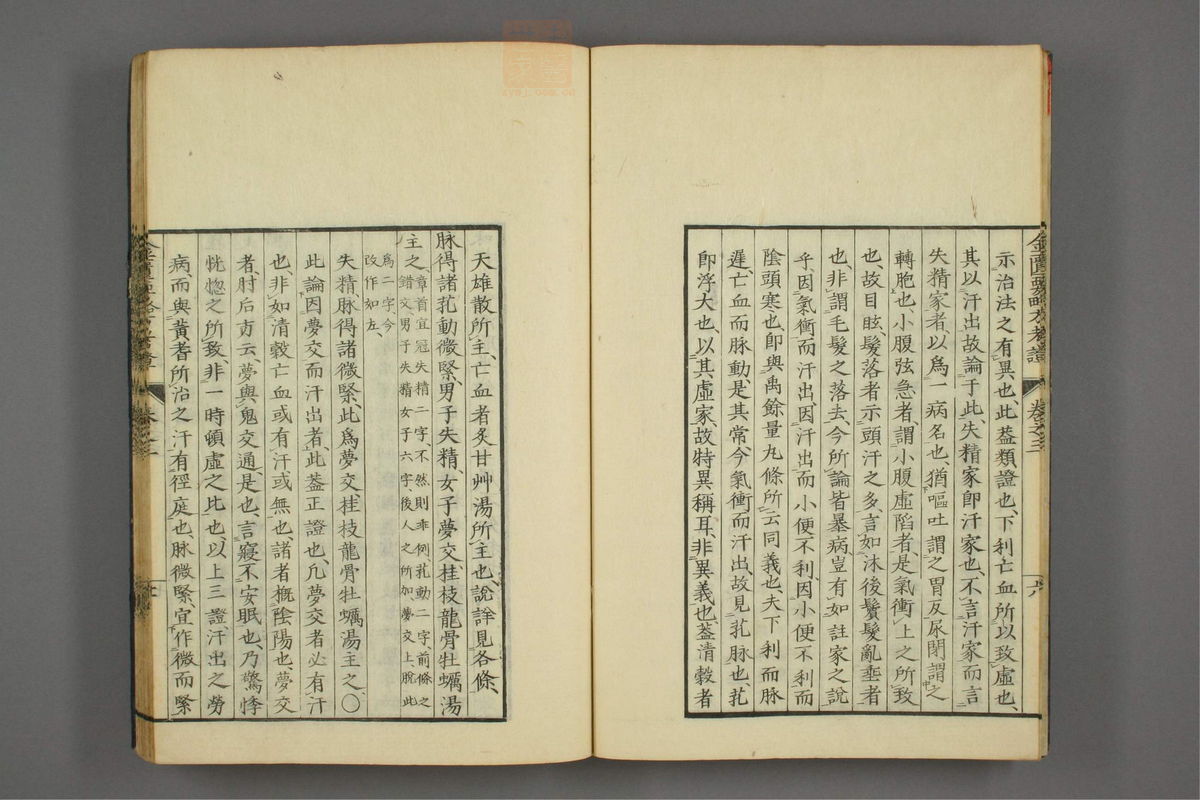 示治法之有異也、此葢類證也、下利亡血所以致虛也、
其以汗出故論于此、失精家卽汗家也、不言汗家而言
失精家者、以爲一病名也、猶嘔吐謂之胃反尿閉謂之
轉胞也、小腹弦急者、謂小腹虛陷者、是氣衝上之所致
也故目眩、髮落者示頭汗之多、言如沐後鬢髮亂垂者
也、非謂毛髮之落去、今所論皆暴病、豈有如註家之說
乎、因氣衝而汗出、因汗出而小便不利、因小便不利而
陰頭寒也、卽與禹餘量丸條所云同義也、夫下利而脉
遲、亡血而脉動、是其常、今氣衝而汗出、故見芤脉也、芤
卽浮大也、以其虛家、故特異稱耳、非異義也、葢淸穀者
天雄散所主、亡血者炙甘艸湯所主也、說詳見各條、
脉得諸芤動微緊、男子失精、女子夢交、桂枝龍骨牡蠣湯
主之、章首宜冠失精二字、不然則乖例芤動二字、前條之
錯交、男子失精女子六字、後人之所加、夢交上、脫此
爲二字、今
改作如左、
失精、脉得諸微緊、此爲夢交、桂枝龍骨牡蠣湯主之、〇
此論因夢交而汗出者、此葢正證也、凢夢交者必有汗
也、非如淸穀亡血或有汗或無也、諸者概陰陽也、夢交
者、肘后方云、夢與鬼交通是也、言寢不安眠也、乃驚悸
恍惚之所致、非一時頓虛之比也、以上三證、汗出之勞
病、而與黃耆所治之汗有徑庭也、脉微緊、宜作微而緊